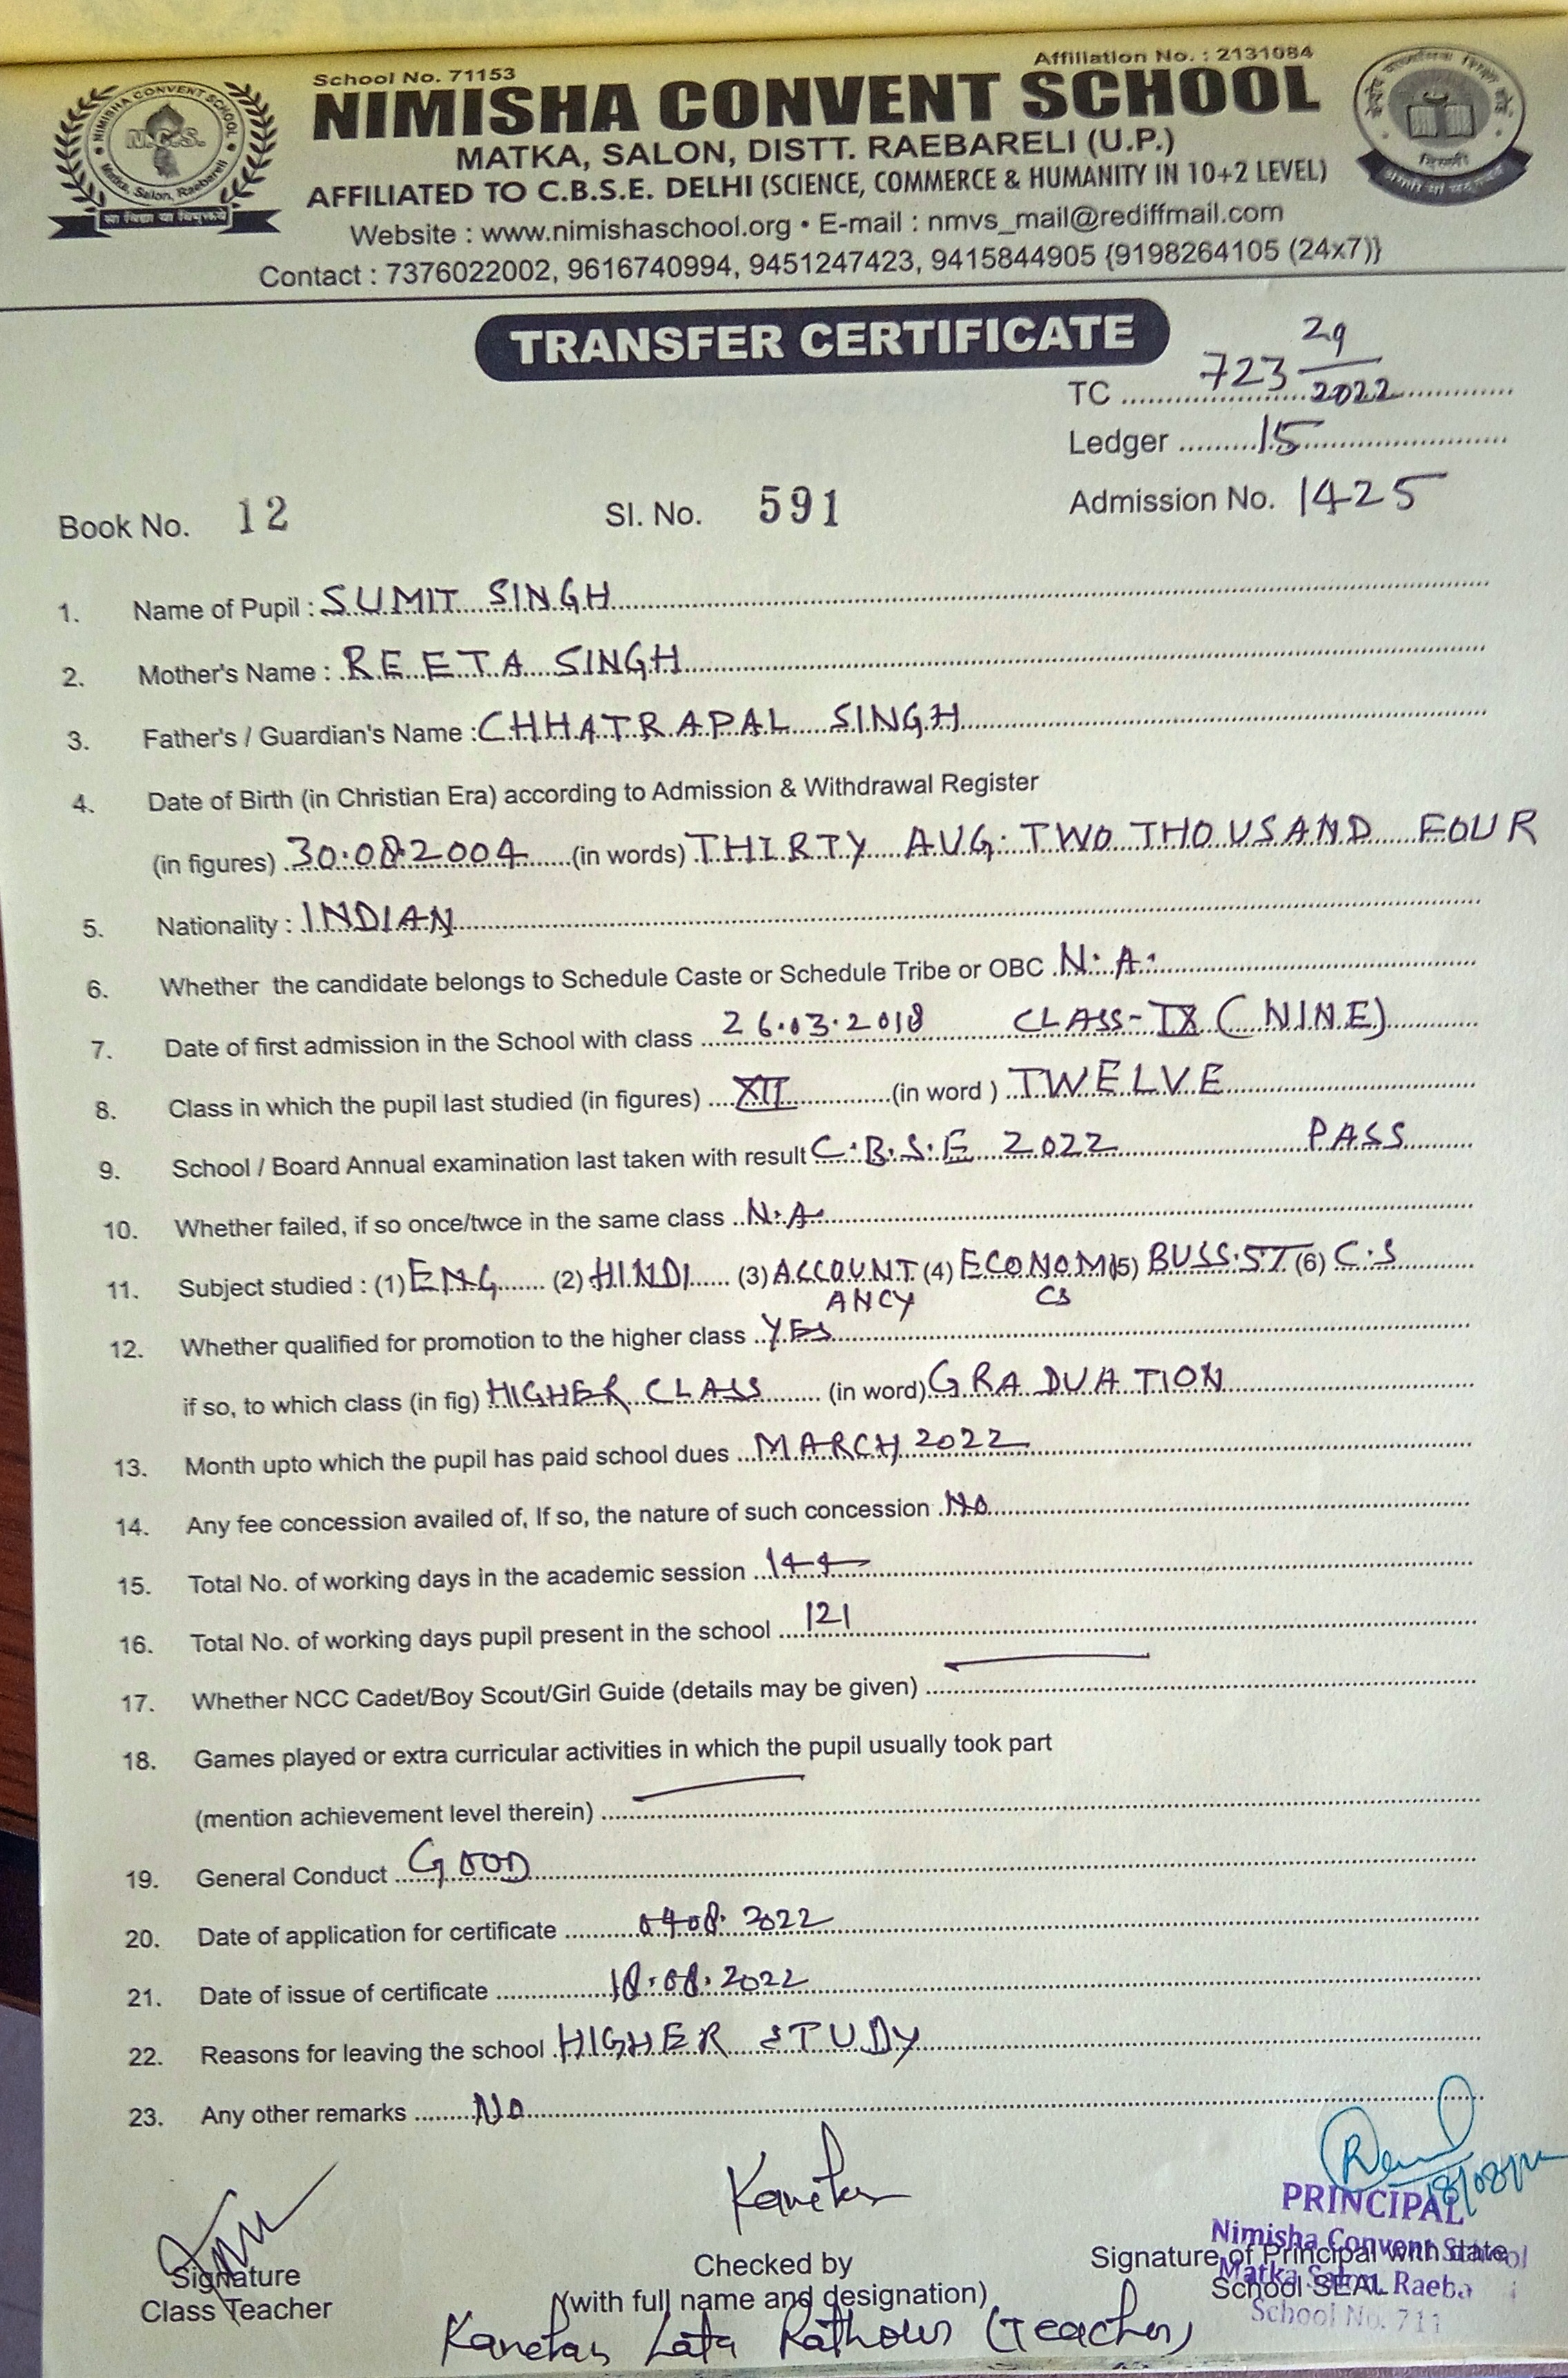 School No. 71153
Affiliation No. : 2131084
NIMISHA CONVENT SCHOOL
MATKA, SALON, DISTT. RAEBARELI (U.P.)
AFFILIATED TO C.B.S.E. DELHI (SCIENCE, COMMERCE & HUMANITY IN 10+2 LEVEL)
Website : www.nimishaschool.org • E-mail : nmvs_mail@rediffmail.com
Contact : 7376022002, 9616740994, 9451247423, 9415844905 {9198264105 (24x7)}
NIMISHA CONVENT SCHOOL
N.C.S.
Matka, Salon, Raebareli
सा विद्या या विमुक्तये
TRANSFER CERTIFICATE
TC 723 29/2022
Ledger 15
Book No. 12 Sl. No. 591 Admission No. 1425
1. Name of Pupil : SUMIT SINGH
2. Mother's Name : REETA SINGH
3. Father's / Guardian's Name : CHHATRAPAL SINGH
4. Date of Birth (in Christian Era) according to Admission & Withdrawal Register
(in figures) 30.08.2004 (in words) THIRTY AUG. TWO THOUSAND FOUR
5. Nationality : INDIAN
6. Whether the candidate belongs to Schedule Caste or Schedule Tribe or OBC N.A.
7. Date of first admission in the School with class 26.03.2018 CLASS-IX (NINE)
8. Class in which the pupil last studied (in figures) XII (in word ) TWELVE
9. School / Board Annual examination last taken with result C.B.S.E 2022 PASS
10. Whether failed, if so once/twce in the same class N.A.
11. Subject studied : (1) ENG (2) HINDI (3) ACCOUNT (4) ECONOMI (5) BUSS.ST (6) C.S
ANCY CS
12. Whether qualified for promotion to the higher class YES
if so, to which class (in fig) HIGHER CLASS (in word) GRADUATION
13. Month upto which the pupil has paid school dues MARCH 2022
14. Any fee concession availed of, If so, the nature of such concession NO
15. Total No. of working days in the academic session 144
16. Total No. of working days pupil present in the school 121
17. Whether NCC Cadet/Boy Scout/Girl Guide (details may be given)
18. Games played or extra curricular activities in which the pupil usually took part
(mention achievement level therein)
19. General Conduct GOOD
20. Date of application for certificate 04.08.2022
21. Date of issue of certificate 18.08.2022
22. Reasons for leaving the school HIGHER STUDY
23. Any other remarks NO
PRINCIPAL
Nimisha Convent School
Matka Salon, Raeba
School No. 711
Signature
Class Teacher
Checked by
(with full name and designation)
Signature of Principal with date
School SEAL
Lata Rathour (Teacher)